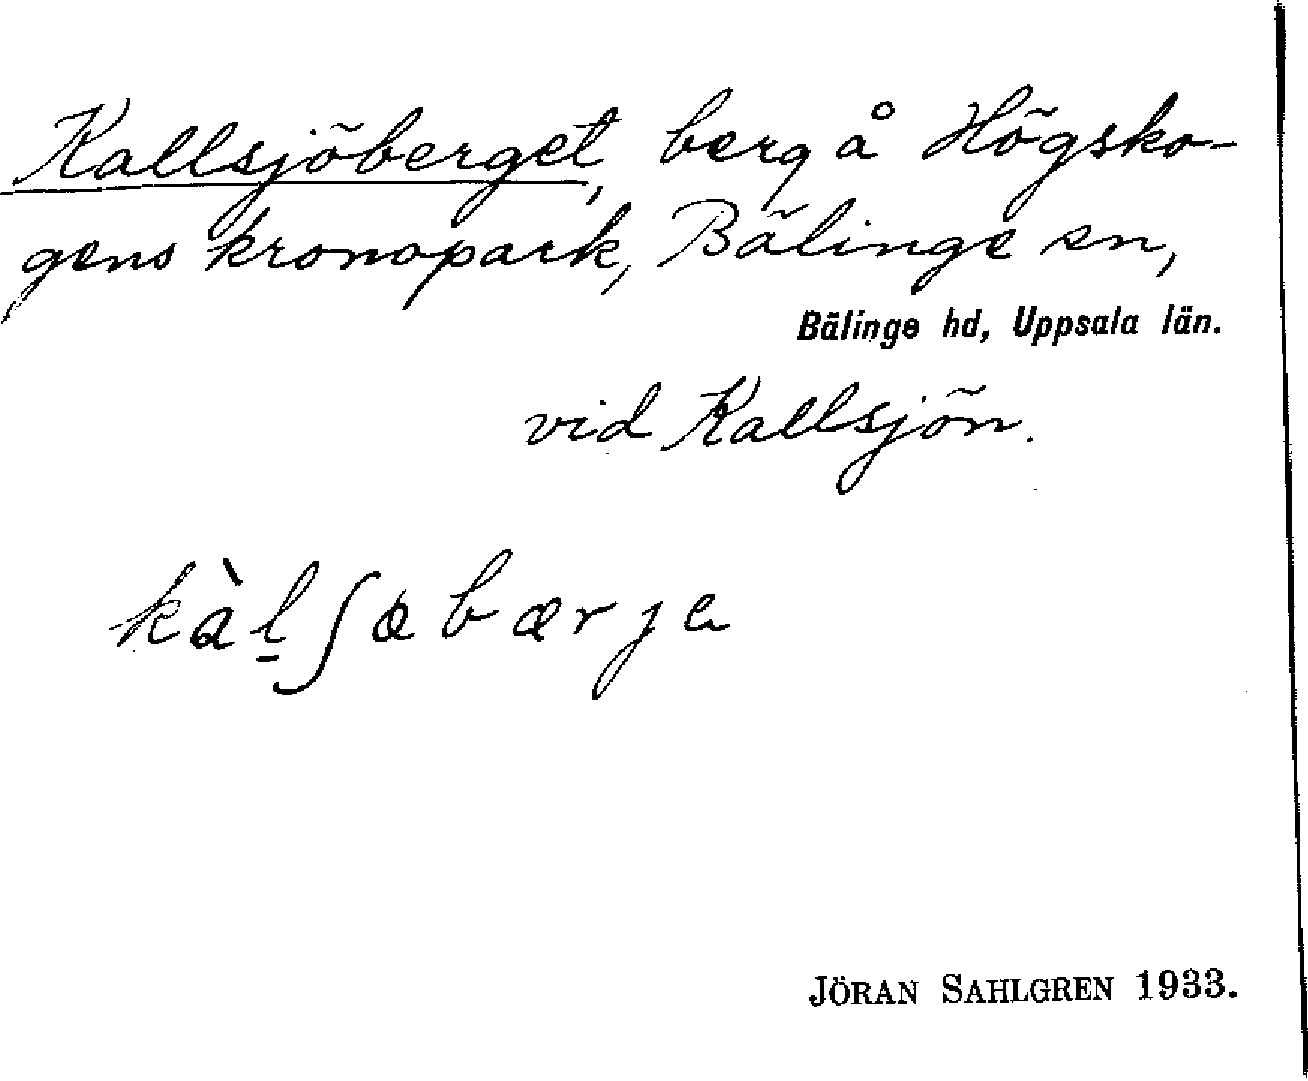 Kallsjöberget, berg å Högsko-
gens kronopark, Bälinge sn,
Bälinge hd, Uppsala län.
vid Kallsjön.
kàl̠ʃɵbærjɛ
JÖRAN SAHLGREN 1933.